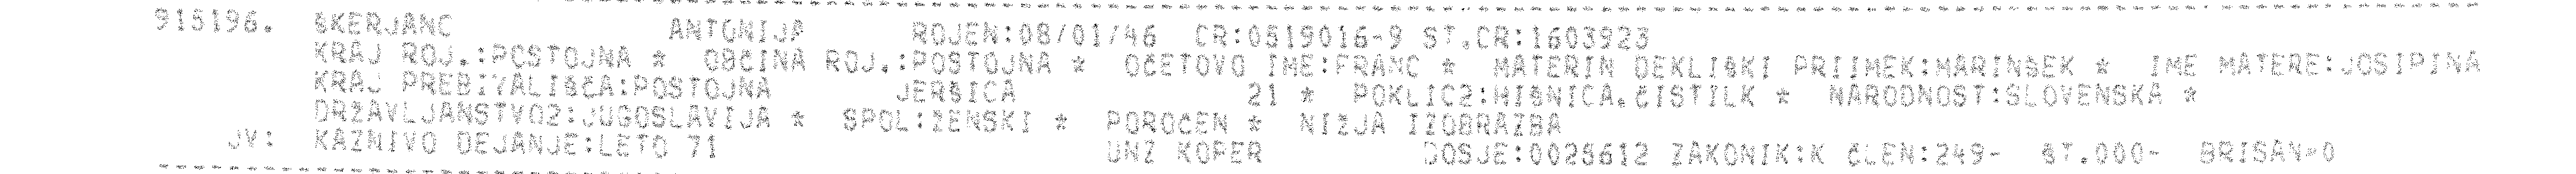 915196. ŠKERJANC ANTONIJA ROJEN:08/01/46 CR:0519016-9 ST.CR:1603923
KRAJ ROJ.:POSTOJNA * OBČINA ROJ.:POSTOJNA * OČETOVO IME:FRANC * MATERIN DEKLIŠKI PRIIMEK:MARINŠEK * IME MATERE:JOSIPINA
KRAJ PREBIVALIŠČA:POSTOJNA JERŠICA 21 * POKLIC2:HIŠNICA.ČISTILK * NARODNOST:SLOVENSKA *
DRŽAVLJANSTVO2:JUGOSLAVIJA * SPOL:ŽENSKI * POROČEN * NIŽJA IZOBRAZBA
JV: KAZNIVO DEJANJE:LETO 71 UNZ KOPER DOSJE:0025612 ZAKONIK:K ČLEN:249- ŠT.000- BRISAN=0